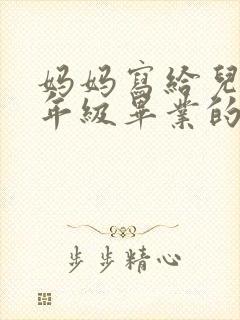 妈妈寫給兒
年級畢業的
步步精心